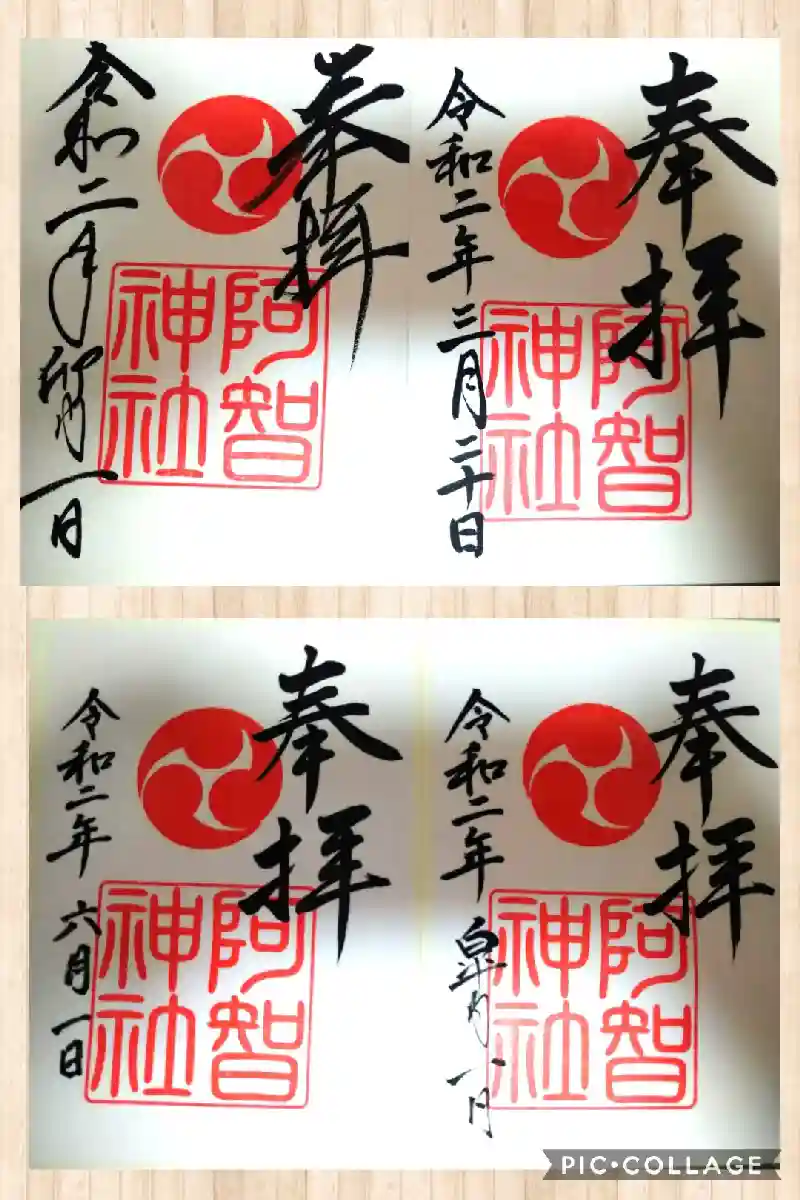 奉拝
阿智
神社
令和二年卯月一日
奉拝
阿智
神社
令和二年三月二十日
奉拝
阿智
神社
令和二年六月一日
奉拝
阿智
神社
令和二年皐月一日
PIC•COLLAGE